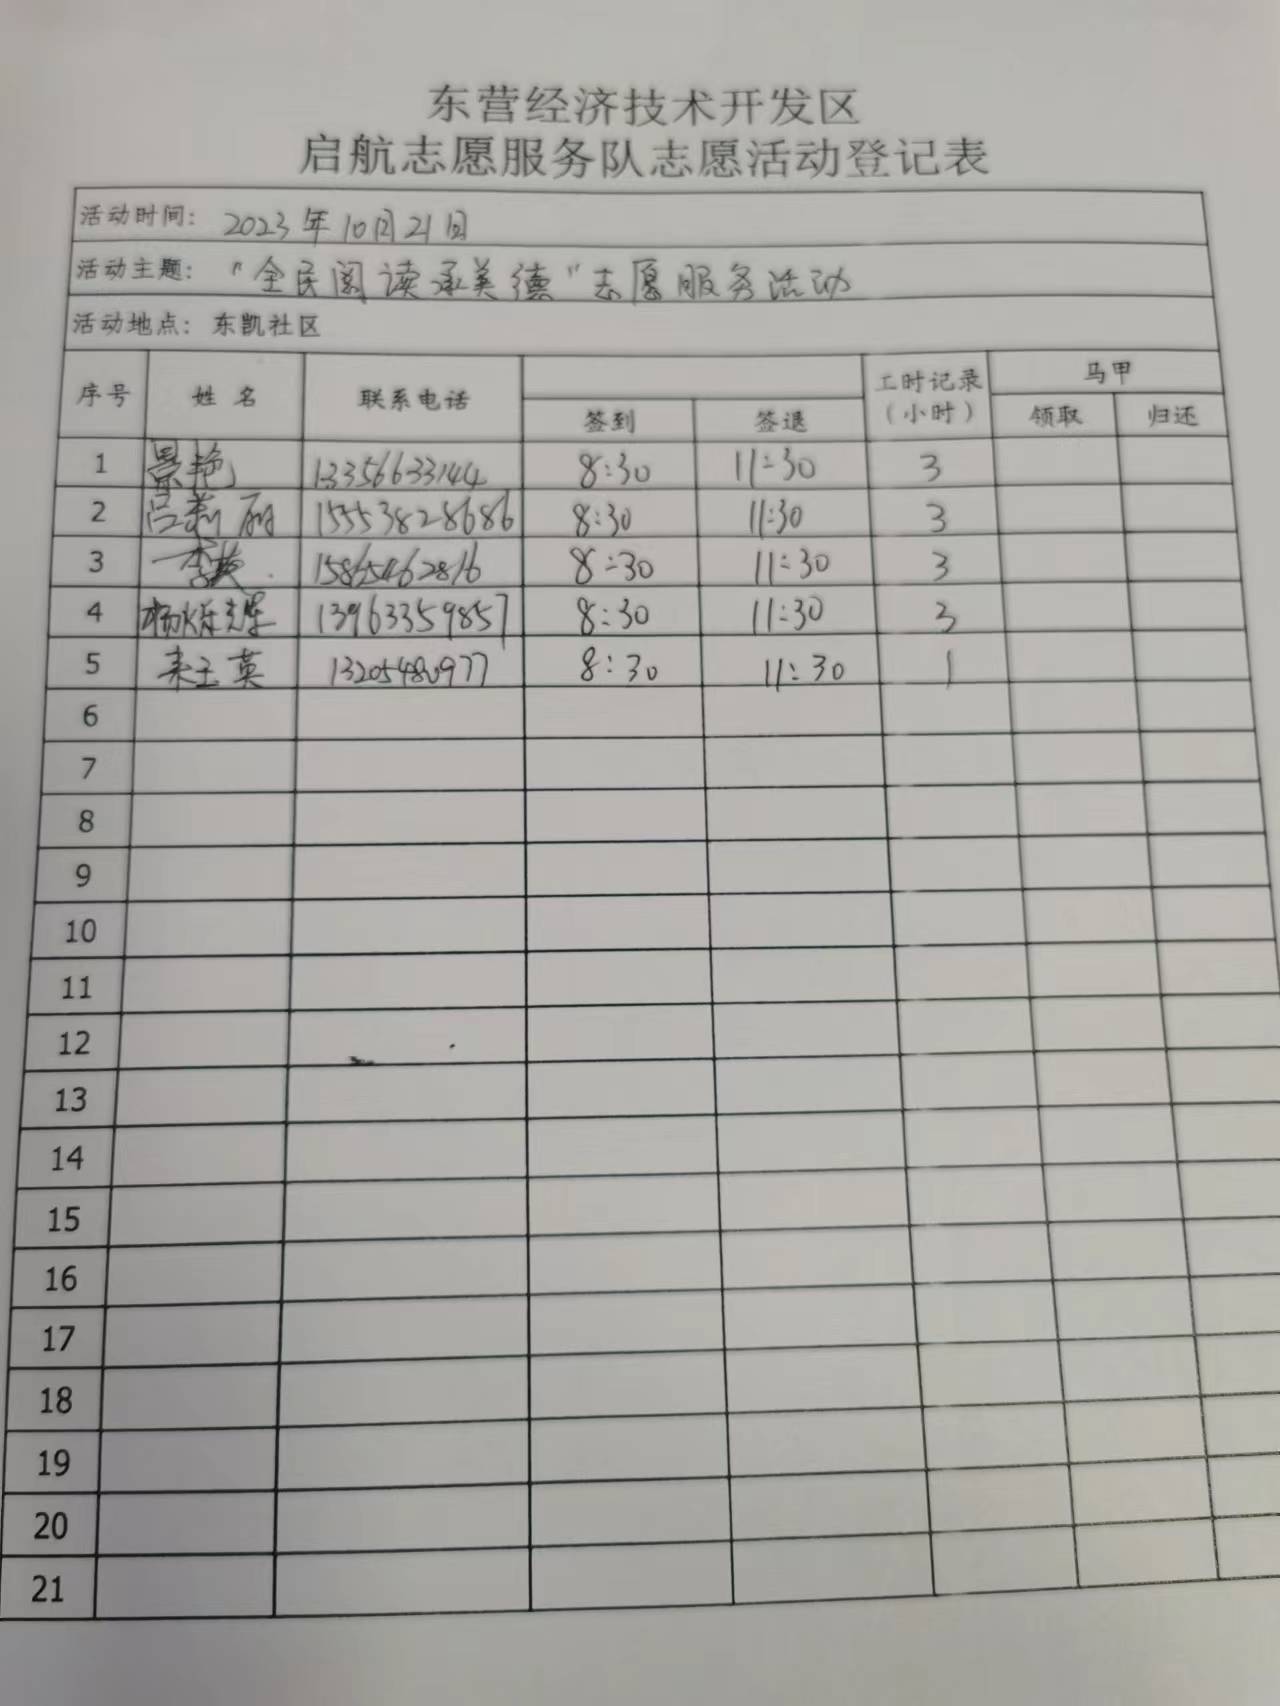 东营经济技术开发区
启航志愿服务队志愿活动登记表
活动时间: 2023年10月21日
活动主题: "全民阅读承美德"志愿服务活动
活动地点: 东凯社区
序号 姓 名 联系电话 工时记录 马甲
签到 签退 (小时) 领取 归还
1 景艳 13356633144 8:30 11:30 3
2 吕莉丽 15553828686 8:30 11:30 3
3 李英 15865462816 8:30 11:30 3
4 13963359857 8:30 11:30 3
5 玉英 13205480977 8:30 11:30 1
6
7
8
9
10
11
12
13
14
15
16
17
18
19
20
21